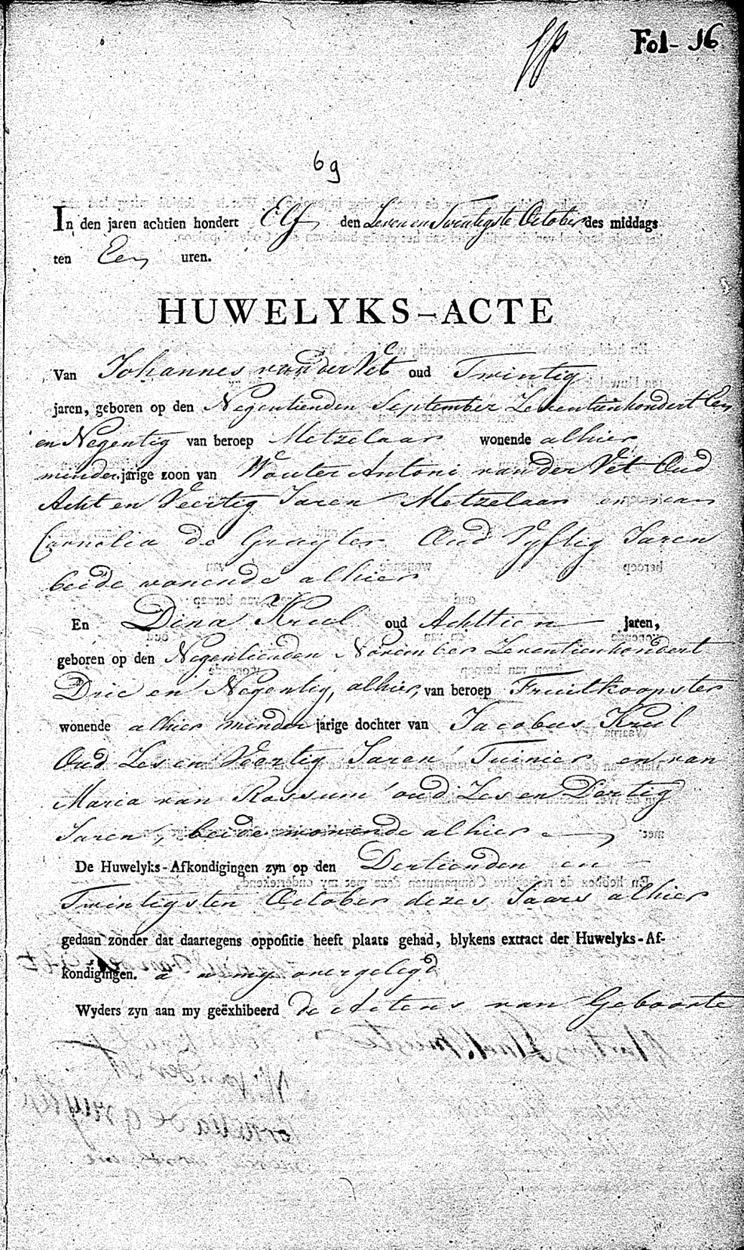 Fol- 16
69
In den jaren achtien hondert Elf den Zeven en Twintigste October des middags
ten Een uren.
HUWELYKS-ACTE
Van Johannes van der Vet oud Twintig
jaren, geboren op den Negentienden September Zeventienhondert Een
en Negentig van beroep Metzelaar wonende alhier
minder jarige zoon van Wouter Antoni van der Vet Oud
Acht en Veertig Jaren Metzelaar en van
Cornelia de Gruyter Oud Vyftig Jaren
beide wonende alhier
En Dina Krul oud Achttien jaren,
geboren op den Negentienden November Zeventienhondert
Drie en Negentig, alhier, van beroep Fruitkoopster
wonende alhier minder jarige dochter van Jacobus Krul
Oud Zes en Veertig Jaren, Tuinier en van
Maria van Rossum oud Zes en Dertig
Jaren, beide wonende alhier
De Huwelyks-Afkondigingen zyn op den Dertienden en
Twintigsten October dezes Jaars alhier
gedaan zonder dat daartegens oppositie heeft plaats gehad, blykens extract der Huwelyks-Af-
kondigingen. a my overgelegd
Wyders zyn aan my geëxhibeerd de Actens van Geboorte